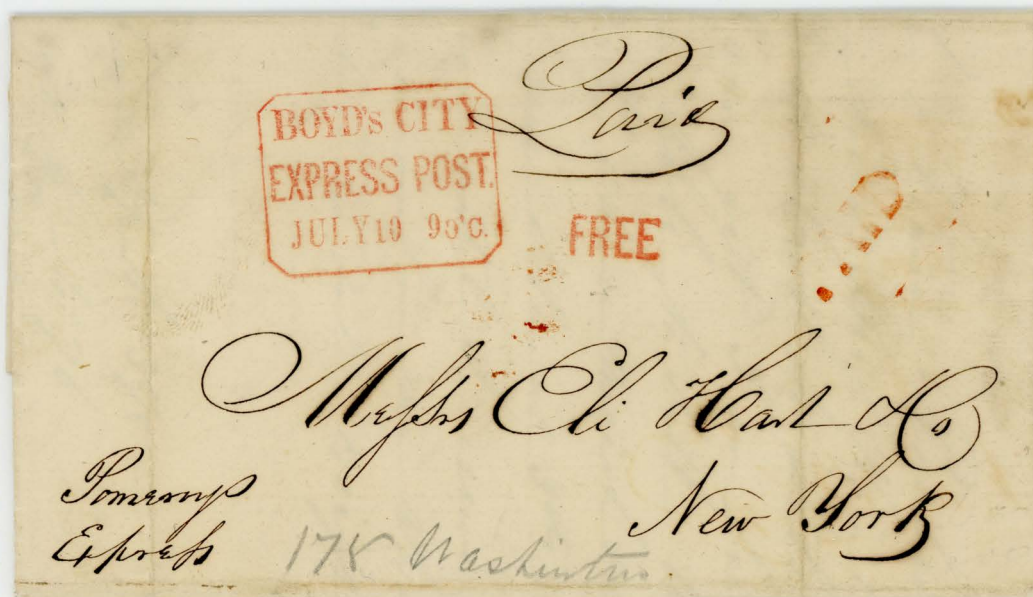 Paid
BOYD'S CITY
EXPRESS POST.
JULY 10 9 o'C.
FREE
Messrs Eli Hart & Co
New York
Pomeroys
Express
178 Washington